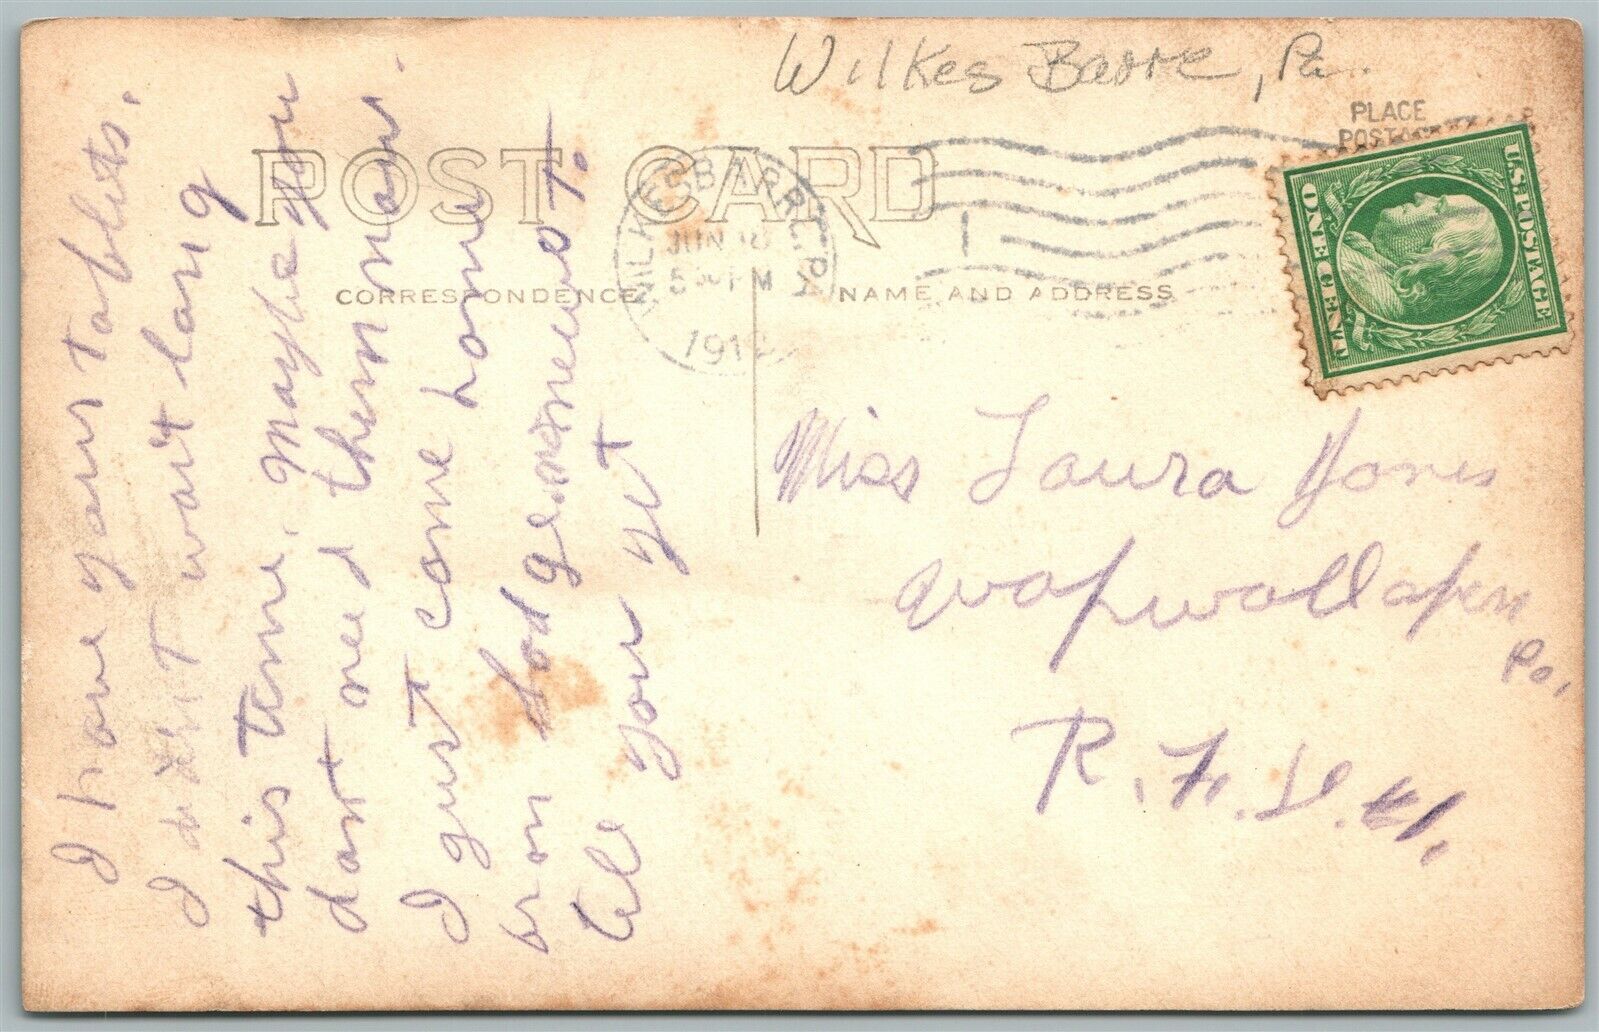 Wilkes Barre, Pa.
PLACE
POST CARD
CORRESPONDENCE
NAME AND ADDRESS
WILKES-BARRE, PA
JUN 18
5 30 PM
1912
1
U.S. POSTAGE
ONE CENT
I have your tablets.
I didn't wait long
this time. Maybe you
dont need them now.
I just come home
from
tell you yet
Miss Laura Jones
Wapwallopen
Pa.
R.F.D. #1.